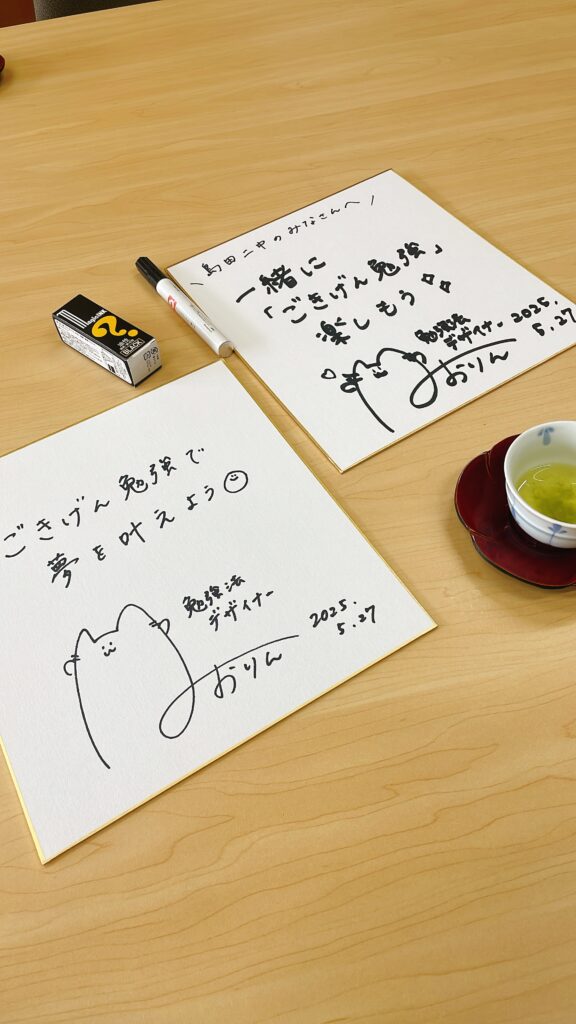 \島田二中のみなさんへ/
一緒に
「ごきげん勉強」
楽しもう
勉強法
デザイナー
おりん
2025.
5.27
ごきげん勉強で
夢を叶えよう
勉強法
デザイナー
おりん
2025.
5.27
BLACK